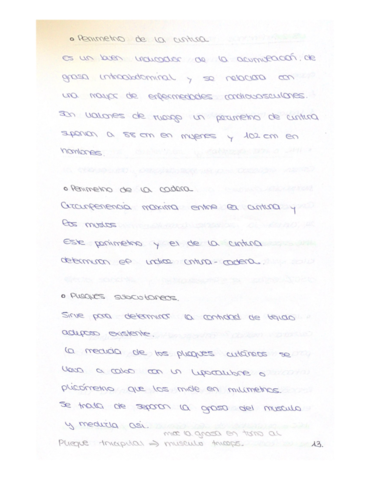 o Perimetro de la cintura
es un buen indicador de la acumulación de
grasa intraabdominal y se relaciona con
una mayor de enfermedades cardiovasculares.
Son valores de riesgo un perimetro de cintura
superior a 88 cm en mujeres y 102 cm en
hombres
o Perimetro de la cadera
Circunferencia maxima entre la cintura y
los muslos
Este perimetro y el de la cintura
determinan el indice cintura-cadera.
o Pliegues subcutaneos.
Sirve para determinar la cantidad de tejido
adiposo existente.
La medida de los pliegues cutáneos se
lleva a cabo con un lipocalibre o
plicómetro que los mide en milimetros.
Se trata de separar la grasa del musculo
y medirla asi.
mide la grasa en torno al
Pliegue tricipital → musculo triceps.
13.